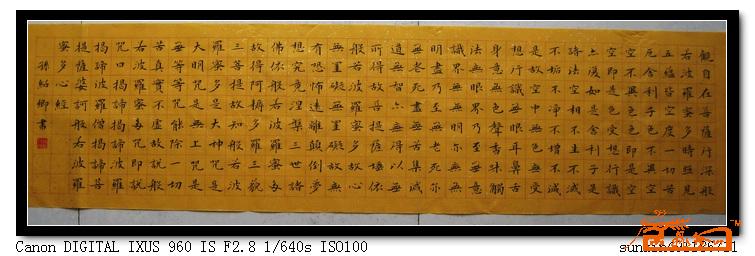 觀自在菩薩行深般
若波羅蜜多時照見
五蘊皆空度一切苦
厄舍利子色不異空
空不異色色即是空
空即是色受想行識
亦復如是舍利子是
諸法空相不生不滅
不垢不淨不增不減
是故空中無色無受
想行識無眼耳鼻舌
身意無色聲香味觸
法無眼界乃至無意
識界無無明亦無無
明盡乃至無老死亦
無老死盡無苦集滅
道無智亦無得以無
所得故菩提薩埵依
般若波羅蜜多故心
無罣礙無罣礙故無
有恐怖遠離顛倒夢
想究竟涅槃三世諸
佛依般若波羅蜜多
故得阿耨多羅三藐
三菩提故知般若波
羅蜜多是大神咒是
大明咒是無上咒是
無等等咒能除一切
苦真實不虛故說般
若波羅蜜多咒即說
咒曰揭諦揭諦波羅
揭諦波羅僧揭諦菩
提薩婆訶般若波羅
蜜多心經
孫紹卿書
Canon DIGITAL IXUS 960 IS F2.8 1/640s ISO100